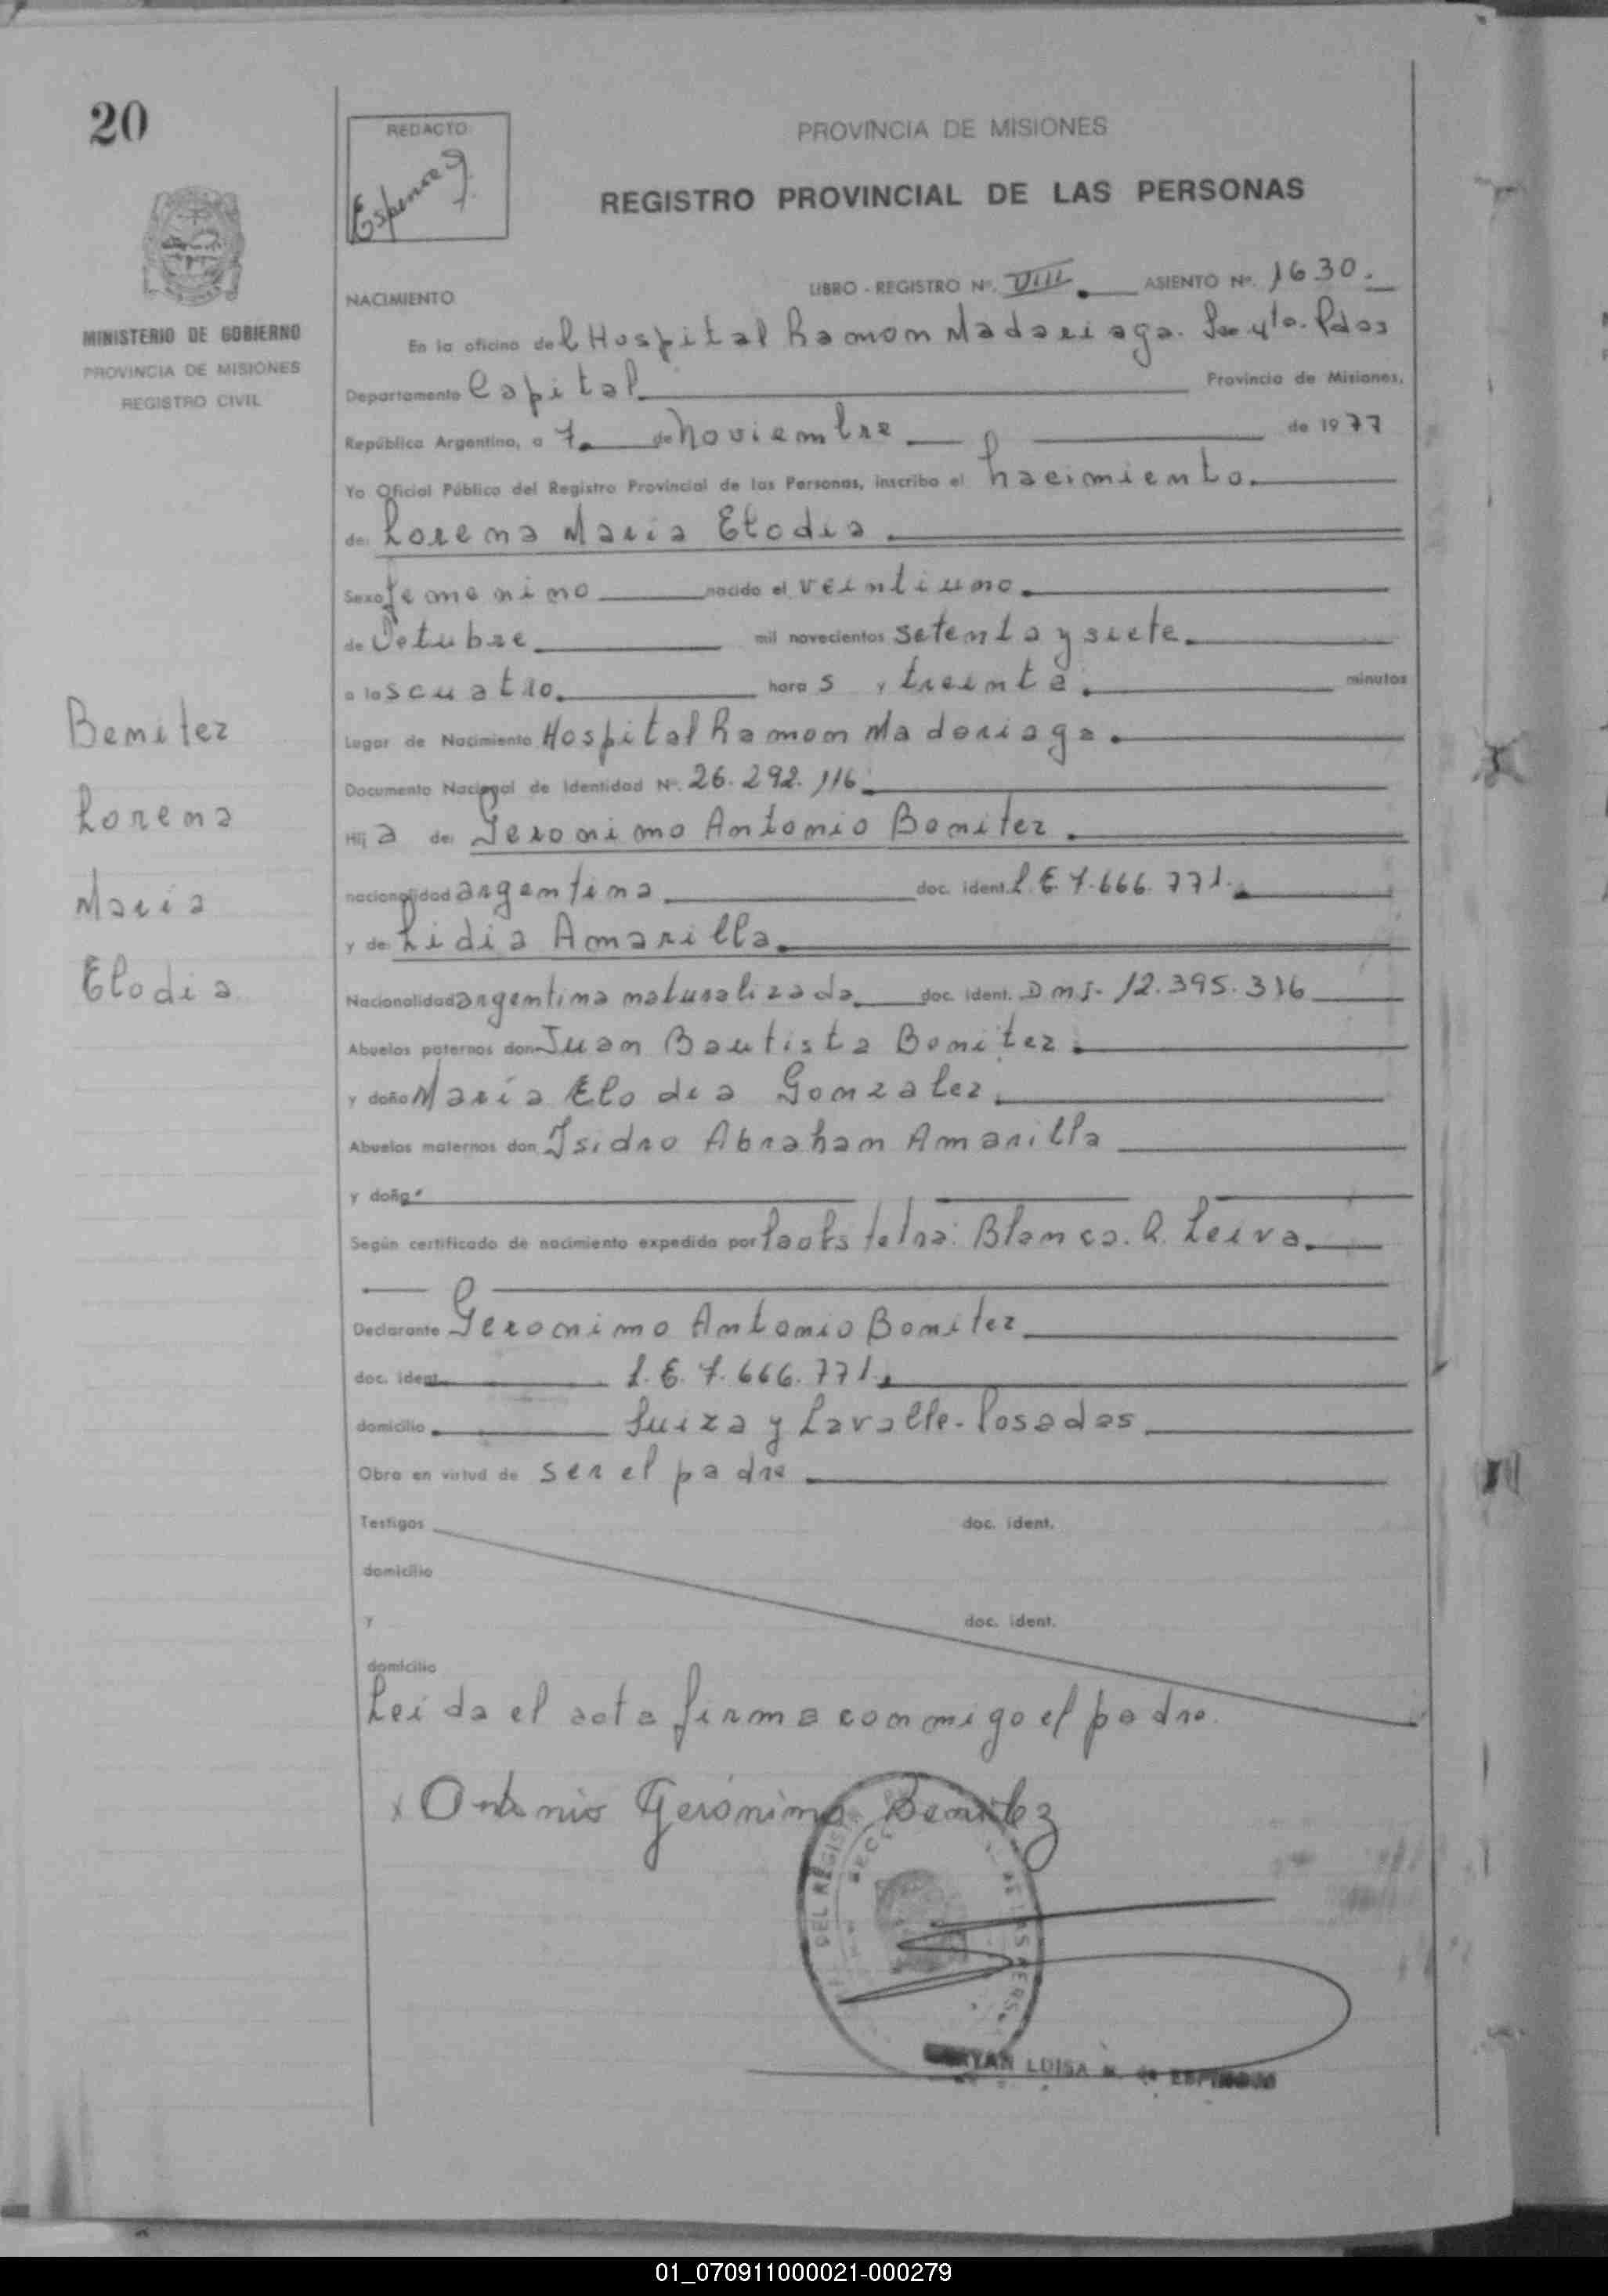 20
REDACTO
PROVINCIA DE MISIONES
REGISTRO PROVINCIAL DE LAS PERSONAS
MINISTERIO DE GOBIERNO
PROVINCIA DE MISIONES
REGISTRO CIVIL
NACIMIENTO
LIBRO - REGISTRO Nº. VIII. ASIENTO Nº. 1630.
En la oficina del Hospital Ramon Madariaga. Sec 4ta. Pdas
Departamento Capital Provincia de Misiones,
República Argentina, a 7 de Noviembre de 1977
Yo Oficial Público del Registro Provincial de las Personas, inscribo el Nacimiento.
de: Lorena Maria Elodia
Sexo femenino nacido el veintiuno
de Octubre mil novecientos setenta y siete
a las cuatro hora s y treinta minutos
Lugar de Nacimiento Hospital Ramon Madariaga.
Documento Nacional de Identidad Nº. 26.292.116
Hij a de: Geronimo Antonio Benitez
nacionalidad argentina doc. ident. L.E. 7.666.771.
y de: Lidia Amarilla
Nacionalidad argentina naturalizada doc. ident. DNI. 12.395.316
Abuelos paternos don Juan Bautista Benitez
y doña Maria Elodia Gonzalez
Abuelos maternos don Isidro Abraham Amarilla
y doña
Según certificado de nacimiento expedido por Blanca. R. Leiva.
Declarante Geronimo Antonio Benitez
doc. ident. L.E. 7.666.771.
domicilio Suiza y Lavalle - Posadas
Obra en virtud de ser el padre
Testigos doc. ident.
domicilio
y doc. ident.
domicilio
Leida el acta firma conmigo el padre.
x Antonio Gerónimo Benitez
DEL REGIST
DE LAS PERS.
LUISA M. de
Benitez
Lorena
Maria
Elodia
01_070911000021-000279